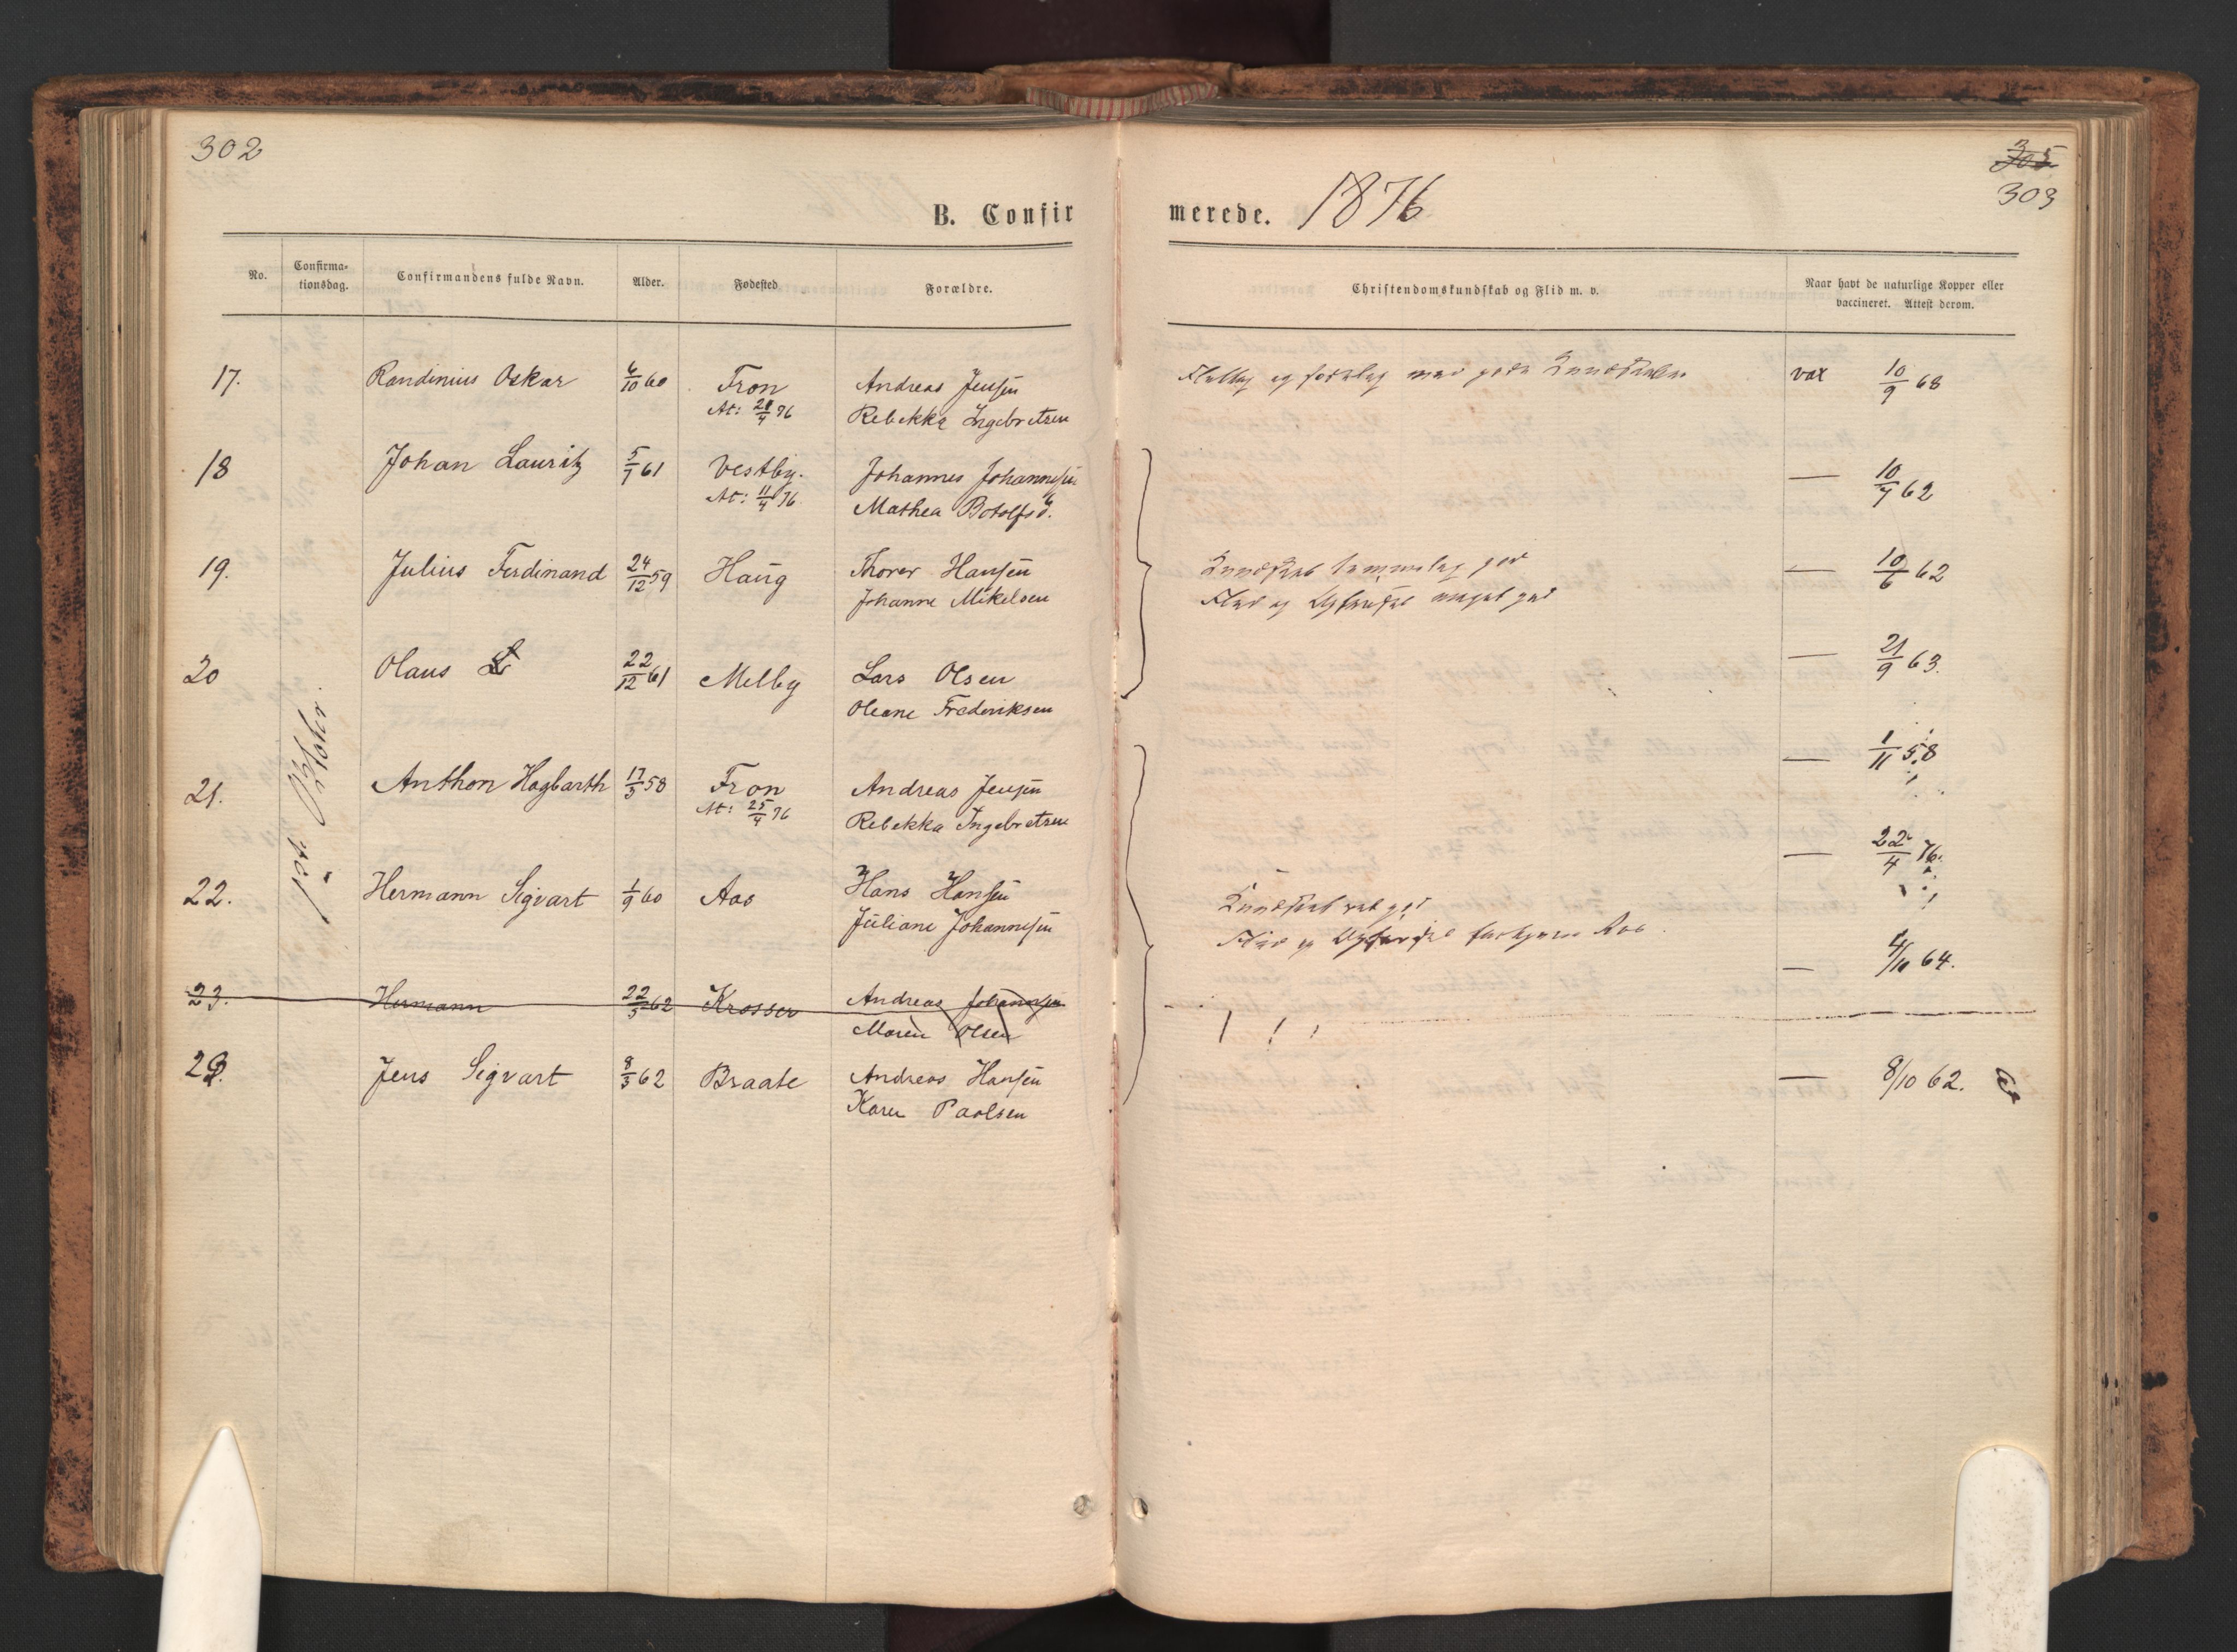 302
B. Confir
No.
Confirma-
tionsdag.
Confirmandens fulde Navn.
Alder.
Fødested
Forældre.
1ste Oktober.
17. Randinius Oskar 6/10 60 Fron Andreas Jensen
At: 21/4 76 Rebekka Ingebretsen
18 Johan Lauritz 5/7 61 Vestby. Johannes Johannesen
At: 11/4 76 Mathea Botolfsd.
19. Julius Ferdinand 24/12 59 Haug Thorer Hansen
Johanne Mikelsen
20 Olaus 22/12 61 Melby Lars Olsen
Oleane Frederiksen
21. Anthon Hagbarth 17/3 58 Fron Andreas Jensen
At: 25/4 76 Rebekka Ingebretsen
22. Hermann Sigvart 1/9 60 Aas Hans Hansen
Juliane Johannesen
23. Hermann 22/5 62 Krosser Andreas Johannesen
Maren Olsen
23. Jens Sigvart 8/3 62 Braate Andreas Hansen
Karen Paolsen
305
303
merede. 1876
Christendomskundskab og Flid m. v.
Naar havt de naturlige Kopper eller
vaccineret. Attest derom.
og med gode Kundskaber vax 10/9 68
— 10/7 62
Kundskab temmelig god — 10/6 62
Flid og Opførsel meget god
— 21/9 63.
— 1/11 58
— 22/4 76.
Kundskab god
Flid og Opførsel
— 4/10 64.
— 8/10 62.